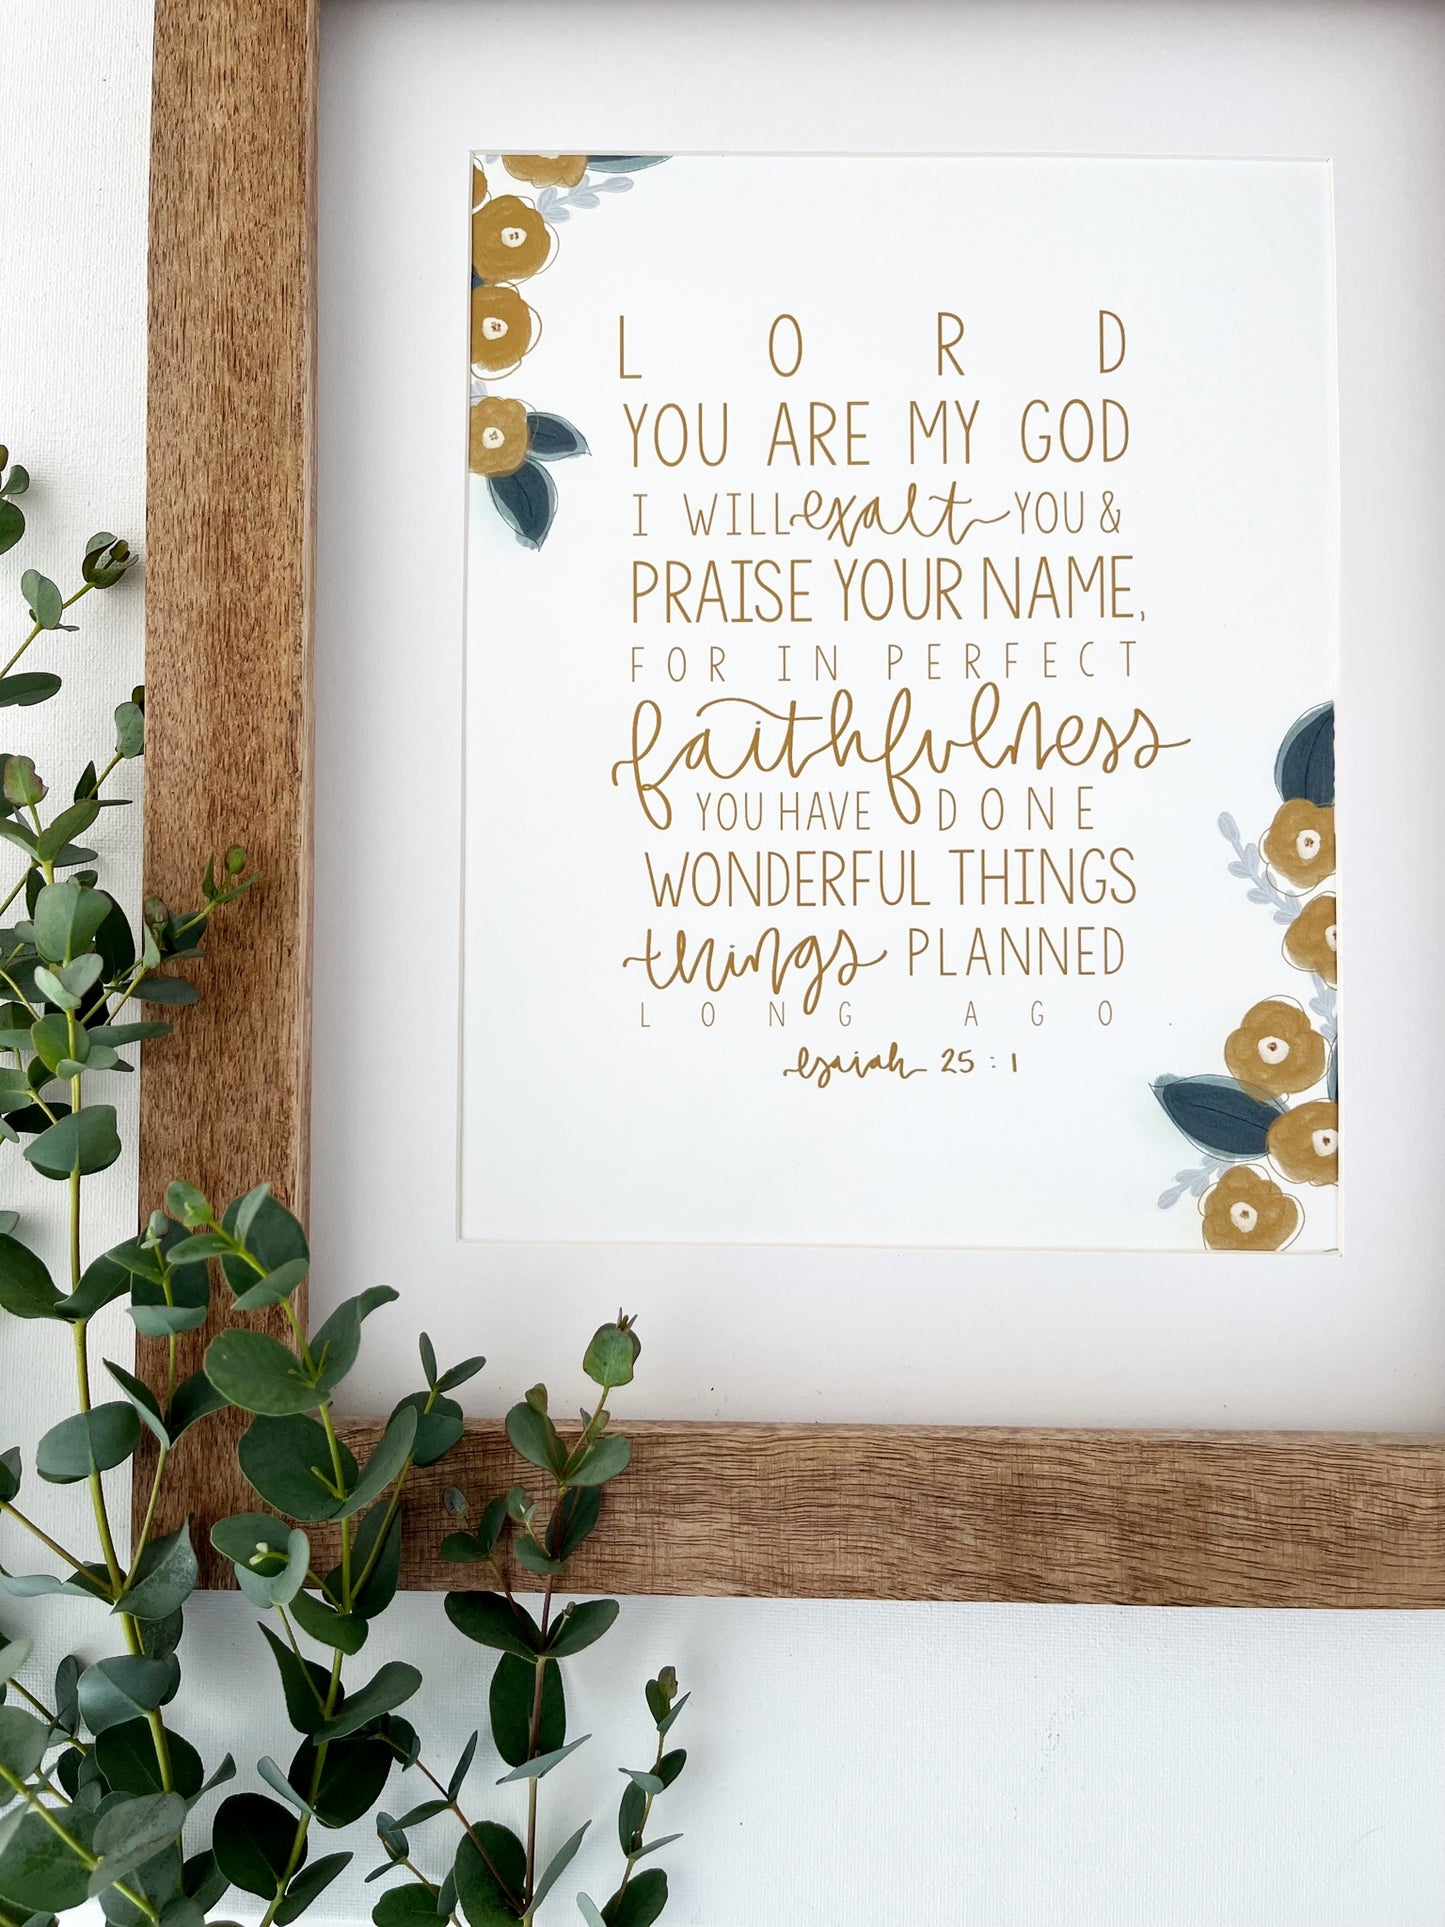 LORD
YOU ARE MY GOD
I WILL exalt YOU &
PRAISE YOUR NAME,
FOR IN PERFECT
faithfulness
YOU HAVE DONE
WONDERFUL THINGS
things PLANNED
LONG AGO.
Isaiah 25:1